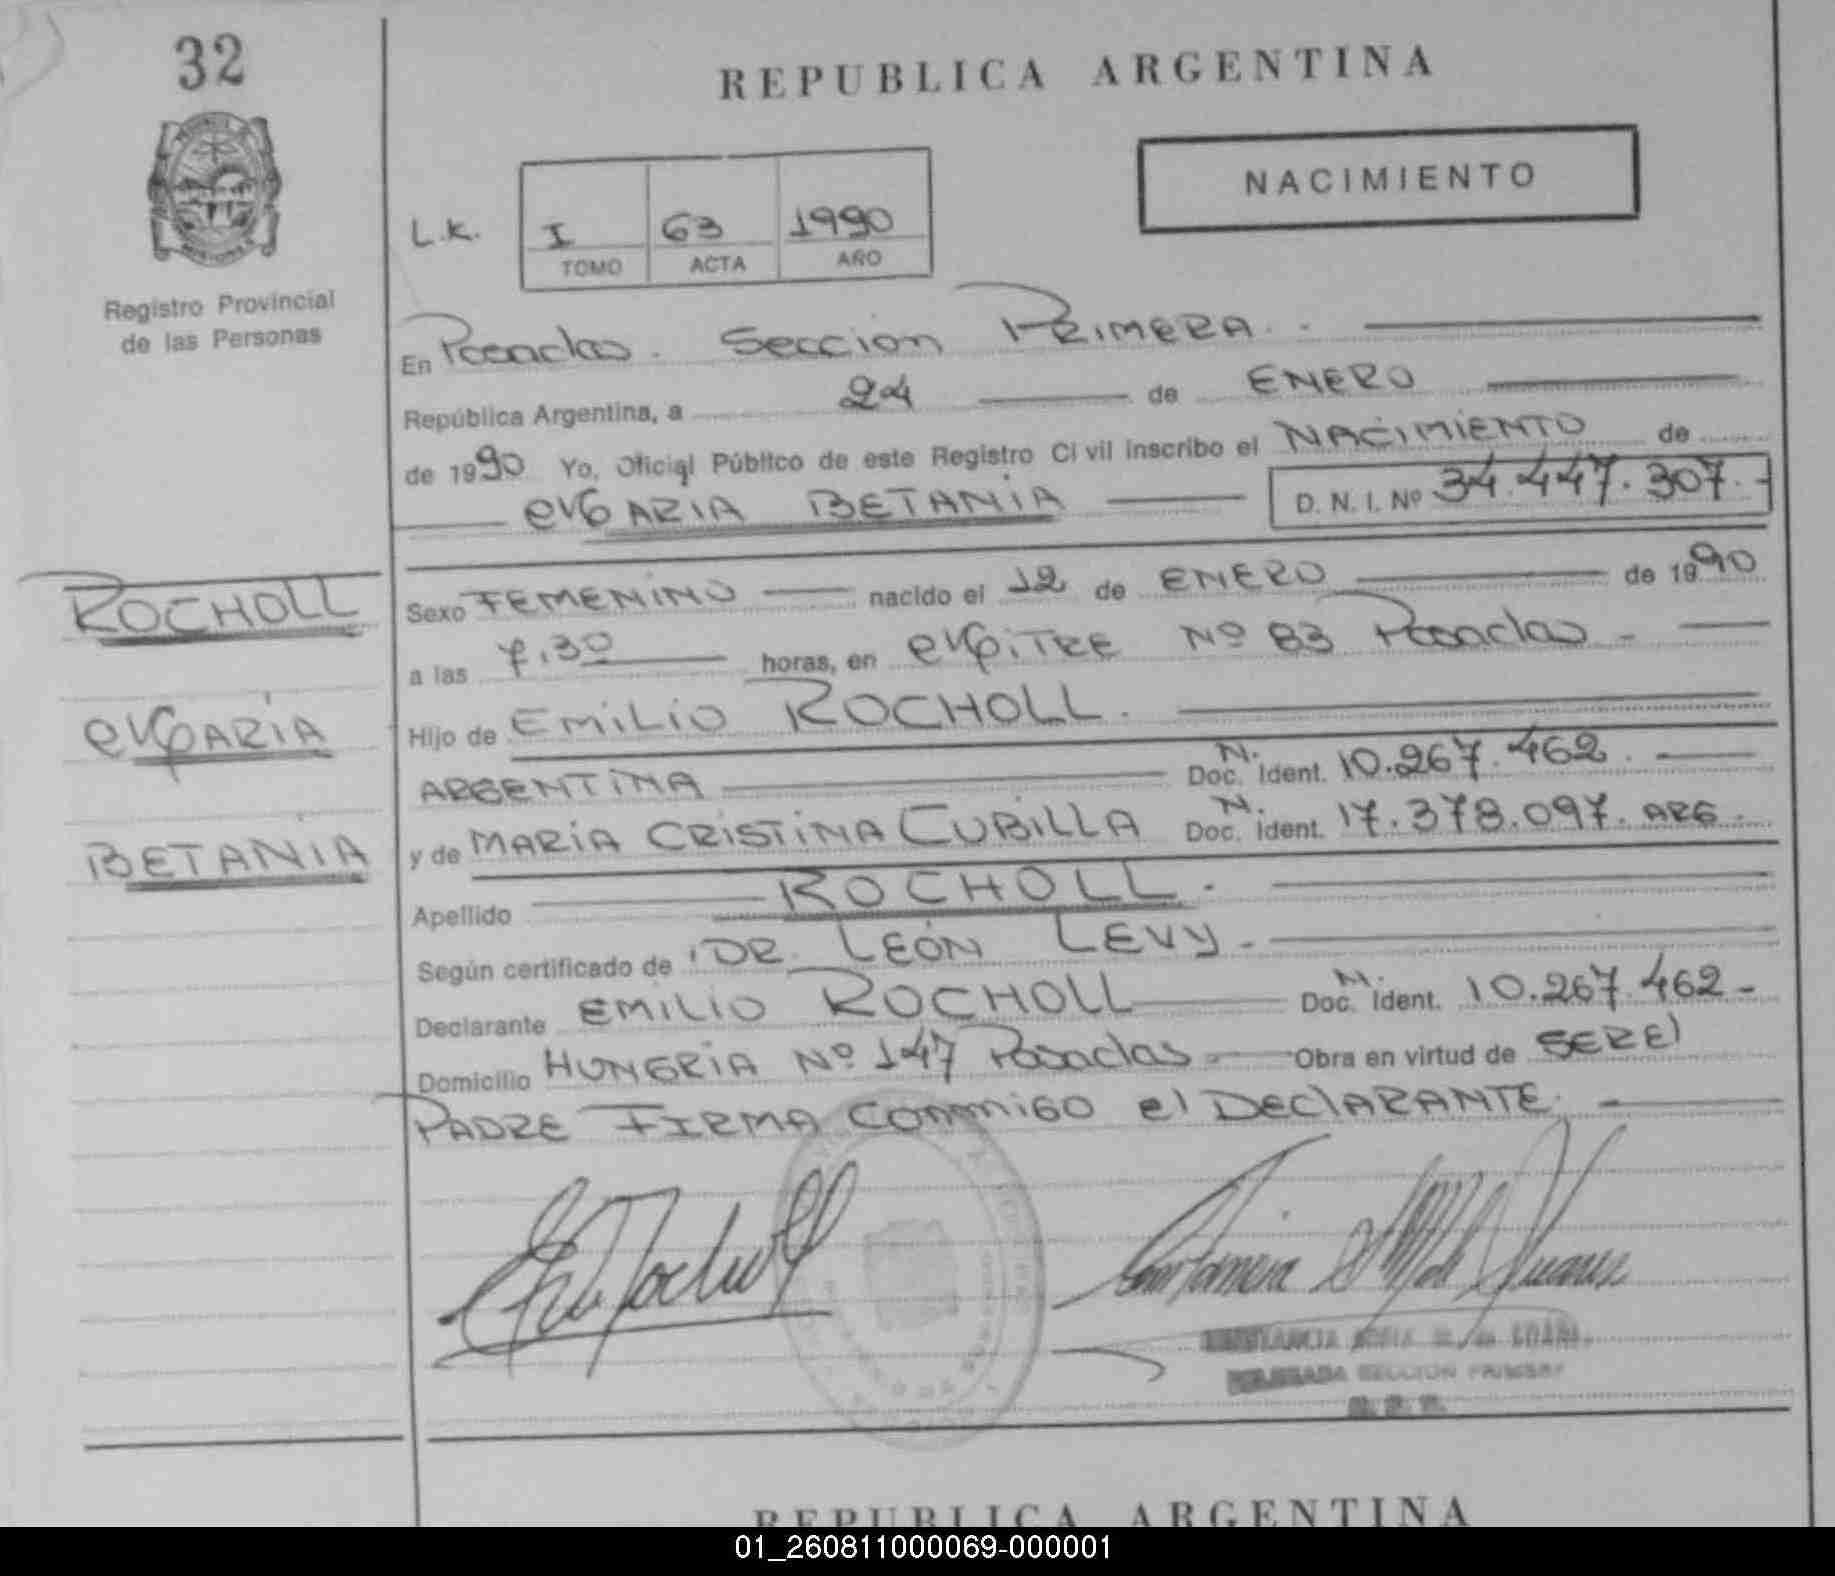 32
REPUBLICA ARGENTINA
NACIMIENTO
L.K. I 63 1990
TOMO ACTA AÑO
Registro Provincial
de las Personas
En Posadas. Seccion PRIMERA.
República Argentina, a 24 de ENERO
de 1990 Yo, Oficial Público de este Registro Civil inscribo el NACIMIENTO de
MARIA BETANIA D. N. I. Nº 34.447.307.-
ROCHOLL
MARIA
BETANIA
Sexo FEMENINO nacido el 12 de ENERO de 1990
a las 7.30 horas, en MITRE Nº 83 Posadas -
Hijo de EMILIO ROCHOLL.
ARGENTINA N. Doc. Ident. 10.267.462.
y de MARIA CRISTINA CUBILLA N. Doc. Ident. 17.378.097. ARG.
Apellido ROCHOLL.
Según certificado de DR. LEÓN LEVY.
Declarante EMILIO ROCHOLL N. Doc. Ident. 10.267.462-
Domicilio HUNGRIA Nº 147 Posadas - Obra en virtud de SER El
PADRE FIRMA CONMIGO el DEClARANTE.
SECCION PRIMERA
REPUBLICA ARGENTINA
01_260811000069-000001